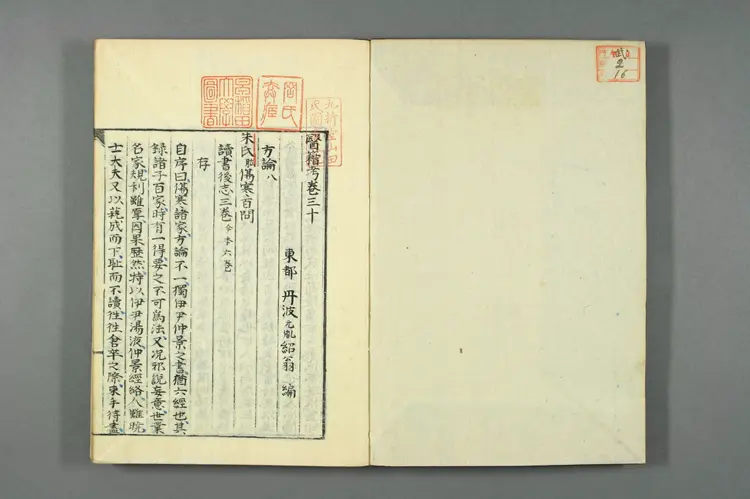 2
16
早稻田大學圖書
醫籍考卷三十
東都 丹波元胤紹翁 編
方論八
朱氏肱傷寒百問
讀書後志三卷今本六卷
存
自序曰傷寒諸家方論不一獨伊尹仲景之書猶六經也其
餘諸子百家時有一得要之不可爲法又况邪說妄意世業
名家規利雖厚因果歷然特以伊尹湯液仲景經絡人難曉
士大夫又以藝成而下恥而不讀往往倉卒之際束手待盡